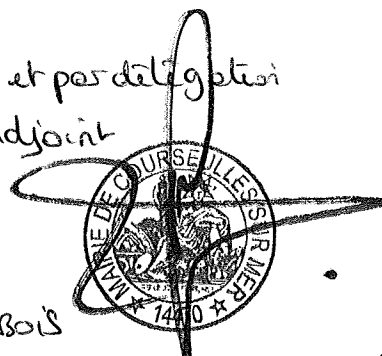 et par délégation
adjoint
MAIRIE DE COURSEULLES SUR MER
14470
BOIS